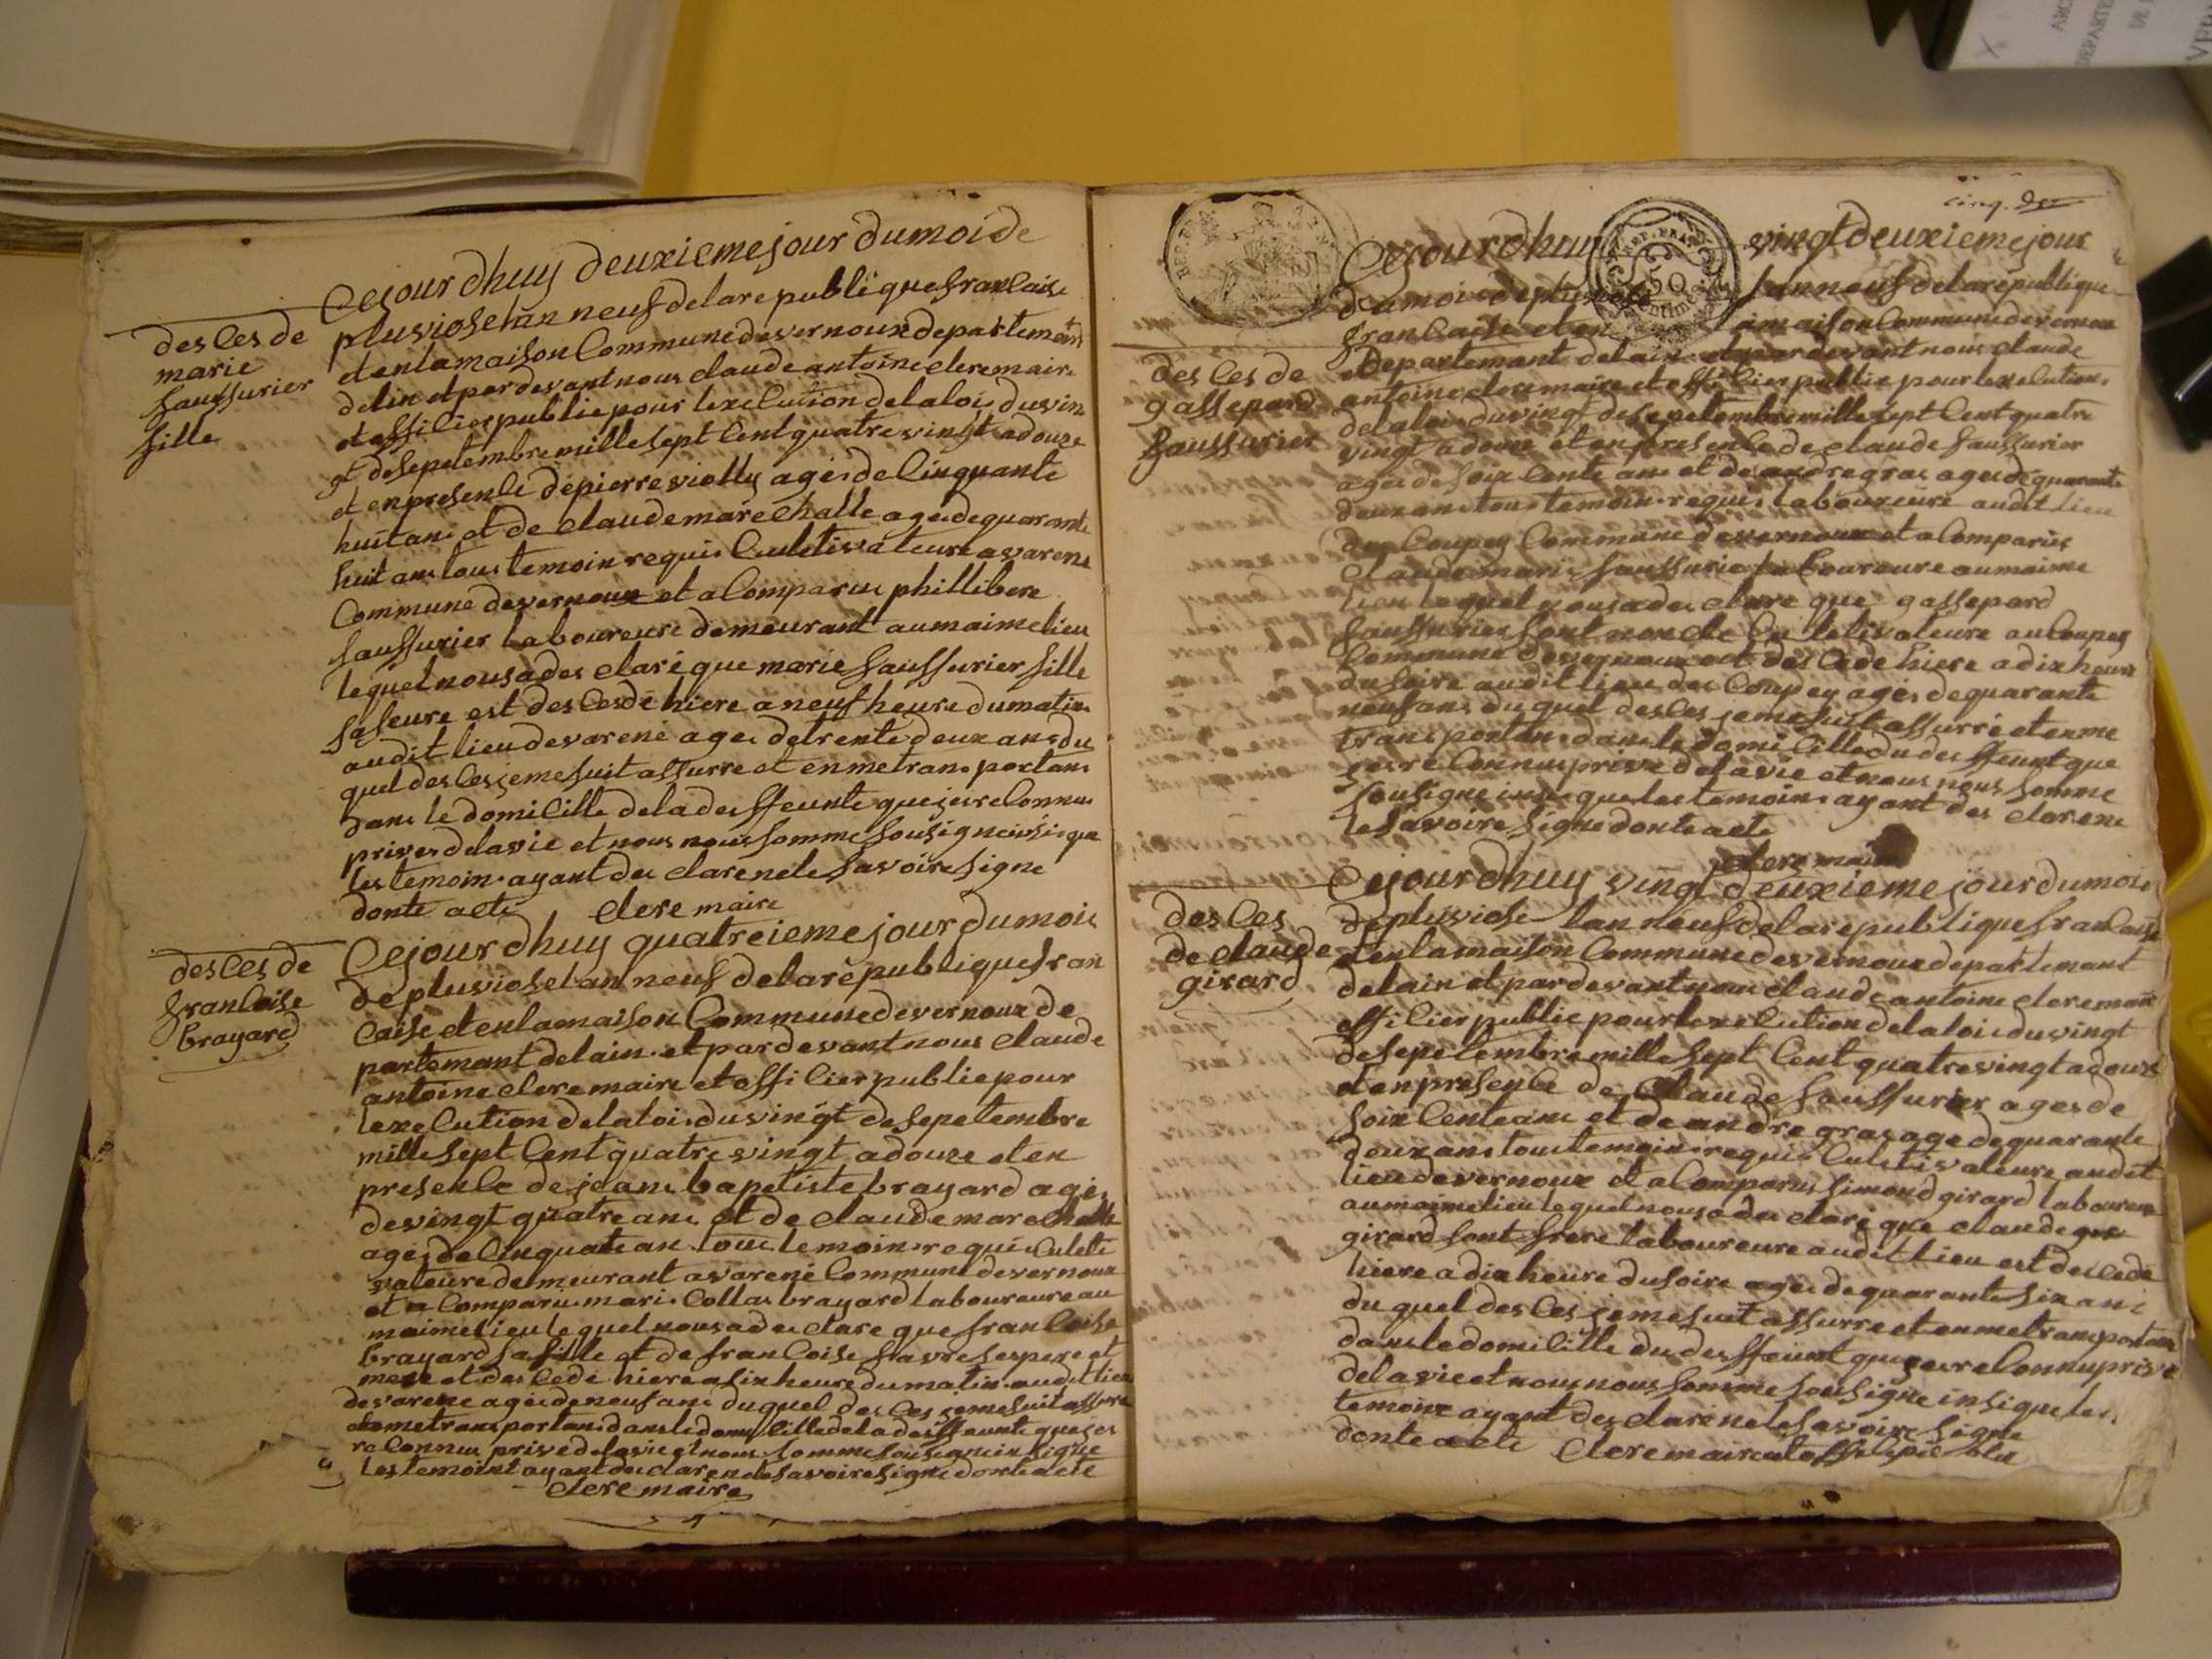 des Ces de
marie
saussurier
fille
Cejour dhuy deuxieme jour dumoi de
pluviose lan neuf delarepubliquefrancaise
etenlamaison Commune devernoux departemant
delin etpardevantnous claude antoine clere maire
et officier publicpour lexecution delalois duvin
gt desepetembre mille sept Cent quatre vingt adouze
et en presence depierre violly ages de Cinquante
huit ans et de claude marechalle ages dequarante
huit ans tous temoin requis Culetivateure avarene
Commune devernoux et a Comparus phillibere
saussurier laboureure demeurant aumaime lieu
lequel nousades claré que marie saussurier fille
saseure est desCesde hiere aneuf heure dumatin
audit lieu devarene ages detrente deux ans du
quel desCes jemesuit assurre et enmetransportans
dans le domicille deladesffeunte quejesreconnus
prives delavie et nous nous somme sousigneinsique
les temoin ayant des clarenele savoire signe
donte acte clere maire
des Ces de
francoise
brayard
Cejour dhuy quatreieme jour dumois
de pluviose lan neuf delarepublique fran
caise etenlamaison Commune devernoux de
partemant delain et pardevant nous claude
antoine clere maire et officier publicpour
lexecution delalois duvingt desepetembre
mille sept Cent quatre vingt adouze et en
presence dejeans bapetiste brayard ages
devingt quatre ans et de claude marechalle
ages de Cinquate an tous temoin requis Culeti
vateure demeurant avarene Commune devernoux
et a Comparus maris Collas brayard laboureure au
maime lieu lequel nousades clare que francoise
brayard sa fille et de francoise favre ses pere et
mere et des Cede hiere a six heure dumatin audit lieu
devarene ages deneuf ans duquel des Ces jemesuit assure
metransportans dans ledomicille deladesffeunte quejes
reconnus privé delavie et nous somme sousigneinsique
les temoint ayant des clarenele savoire signe donte acte
clere maire
Cejourdhuy vingt deuxieme jour
dumois depluviose lan neuf delarepublique
francaise eten lamaison Commune devernoux
des Ces de
gassepard
saussurier
departemant delain et pardevant nous claude
antoine clere maire et officier public pour lexecution
delalois duvingt desepetembre mille sept Cent quatre
vingt adouze et en presence de claude saussurier
ages de soix Cente ans et de andre gras ages dequarante
deuxans tous temoin requis laboureure audit lieu
des Coupey Commune devernoux et a Comparus
claude maris saussurier laboureure aumaime
lieu lequel nousades clare que gassepard
saussurier sont noncle Culetivateure auCoupey
Commune devernoux et des Cede hiere adix heure
du soire audit lieu des Coupey ages dequarante
neuf ans duquel desCes jemesuit assurré et enme
transportans dans le domicille dudesffeunt que
jesreConnus privé delavie et nous nous somme
sousigne insique les temoin ayant des clarene
le savoire signe donte acte
clere maire
des Ces
de claude
girard
Cejour dhuy vingt deuxieme jour dumois
depluviose lan neuf delarepublique francaise
etenlamaison Commune devernoux departemant
delain et pardevant nous claude antoine clere maire
officier public pour lexecution delalois duvingt
desepetembre mille sept Cent quatrevingt adouze
et en presence de Claude saussurier ages de
soix Cente ans et de andre gras age dequarante
deuxans tous temoin requis Culetivateure audit
lieu devernoux et a Comparus simond girard laboureure
aumaime lieu lequel nousades claré que claude
girard sont frere laboureure audit lieu est des Cede
hiere adix heure dusoire ages dequarante six ans
du quel desCes jemesuit assurre et enmetransportans
dans ledomicille dudesffeunt quejesreConnu privé
delavie et nous nous somme sousigne insique les
temoin ayant des clarénele savoire signe
donte acte clere maire et offi